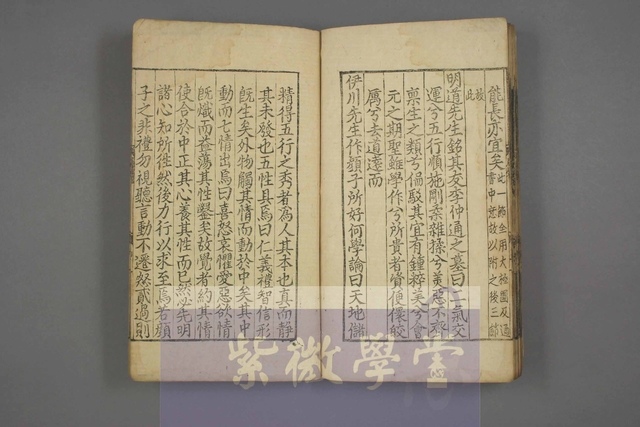 能長亦宜矣
明道先生銘其友李仲通之墓曰二氣交
運兮五行順施剛柔雜揉兮美惡不齊
稟生之類兮偏駁其宜有鍾粹美兮會
元之期聖雖學作兮所貴者資便儇皎
厲兮去道遠而
伊川先生作顏子所好何學論曰天地儲
精得五行之秀者爲人其本也真而靜
其未發也五性具焉曰仁義禮智信形
旣生矣外物觸其情而動於中矣其中
動而七情出焉曰喜怒哀懼愛惡欲情
旣熾而益蕩其性鑿矣故覺者約其情
使合於中正其心養其性而已然必先明
諸心知所往然後力行以求至焉若顏
子之非禮勿視聽言動不遷怒貳過則
紫微學堂